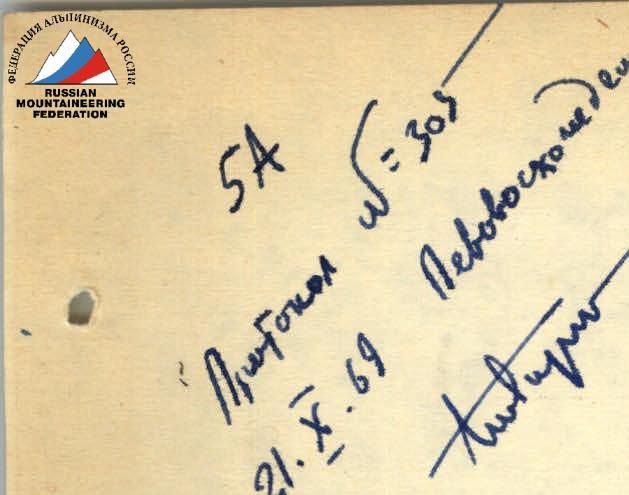 ФЕДЕРАЦИЯ АЛЬПИНИЗМА РОССИИ
RUSSIAN
MOUNTAINEERING
FEDERATION
5А
Протокол №=305
21.X.69 Первовосхожден